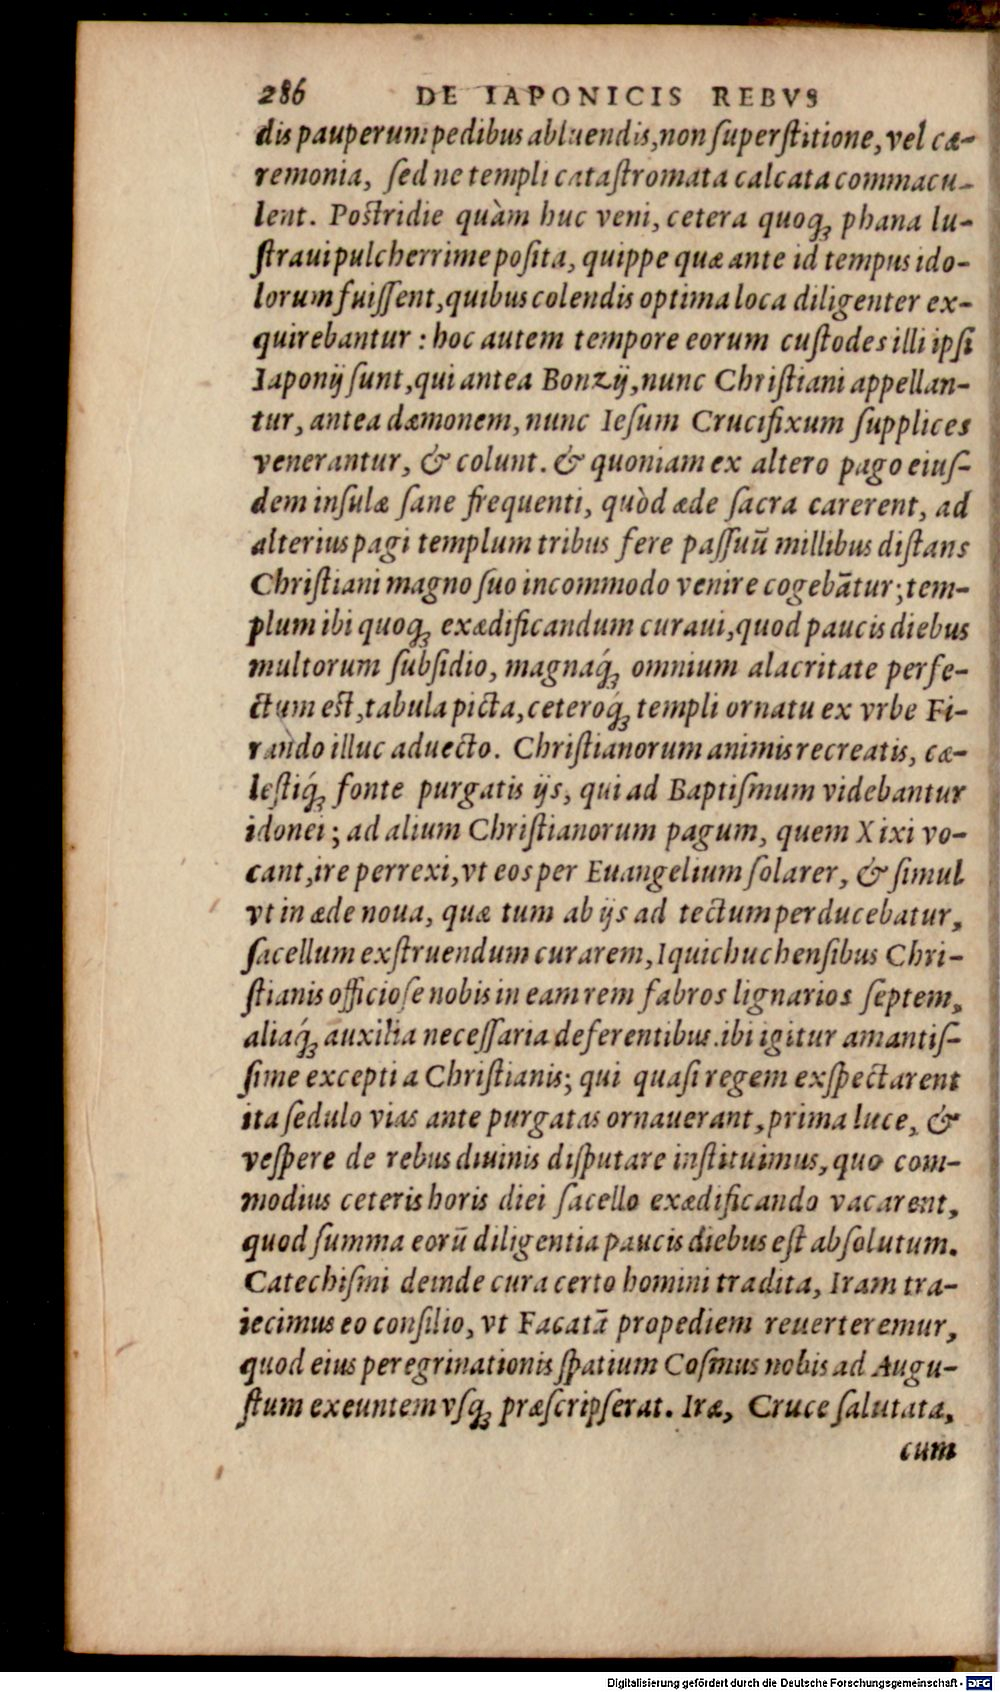 286 DE IAPONICIS REBVS
dis pauperum pedibus abluendis, non superstitione, vel cæ-
remonia, sed ne templi catastromata calcata commacu-
lent. Postridie quàm huc veni, cetera quoq; phana lu-
straui pulcherrime posita, quippe quæ ante id tempus ido-
lorum fuissent, quibus colendis optima loca diligenter ex-
quirebantur : hoc autem tempore eorum custodes illi ipsi
Iaponij sunt, qui antea Bonzij, nunc Christiani appellan-
tur, antea dæmonem, nunc Iesum Crucifixum supplices
venerantur, & colunt. & quoniam ex altero pago eius-
dem insulæ sane frequenti, quòd æde sacra carerent, ad
alterius pagi templum tribus fere passuū millibus distans
Christiani magno suo incommodo venire cogebātur; tem-
plum ibi quoq; exædificandum curaui, quod paucis diebus
multorum subsidio, magnaq́; omnium alacritate perfe-
ctum est, tabula picta, ceteroq́; templi ornatu ex vrbe Fi-
rando illuc aduecto. Christianorum animis recreatis, cæ-
lestiq́; fonte purgatis ijs, qui ad Baptismum videbantur
idonei; ad alium Christianorum pagum, quem Xixi vo-
cant, ire perrexi, vt eos per Euangelium solarer, & simul
vt in æde noua, quæ tum ab ijs ad tectum perducebatur,
sacellum exstruendum curarem, Iquichuchensibus Chri-
stianis officiose nobis in eam rem fabros lignarios septem,
aliaq́; auxilia necessaria deferentibus. ibi igitur amantis-
sime excepti a Christianis; qui quasi regem exspectarent
ita sedulo vias ante purgatas ornauerant, prima luce, &
vespere de rebus diuinis disputare instituimus, quo com-
modius ceteris horis diei sacello exædificando vacarent,
quod summa eorū diligentia paucis diebus est absolutum.
Catechismi deinde cura certo homini tradita, Iram tra-
iecimus eo consilio, vt Facatā propediem reuerteremur,
quod eius peregrinationis spatium Cosmus nobis ad Augu-
stum exeuntem vsq; præscripserat. Iræ, Cruce salutata,
cum
Digitalisierung gefördert durch die Deutsche Forschungsgemeinschaft - DFG